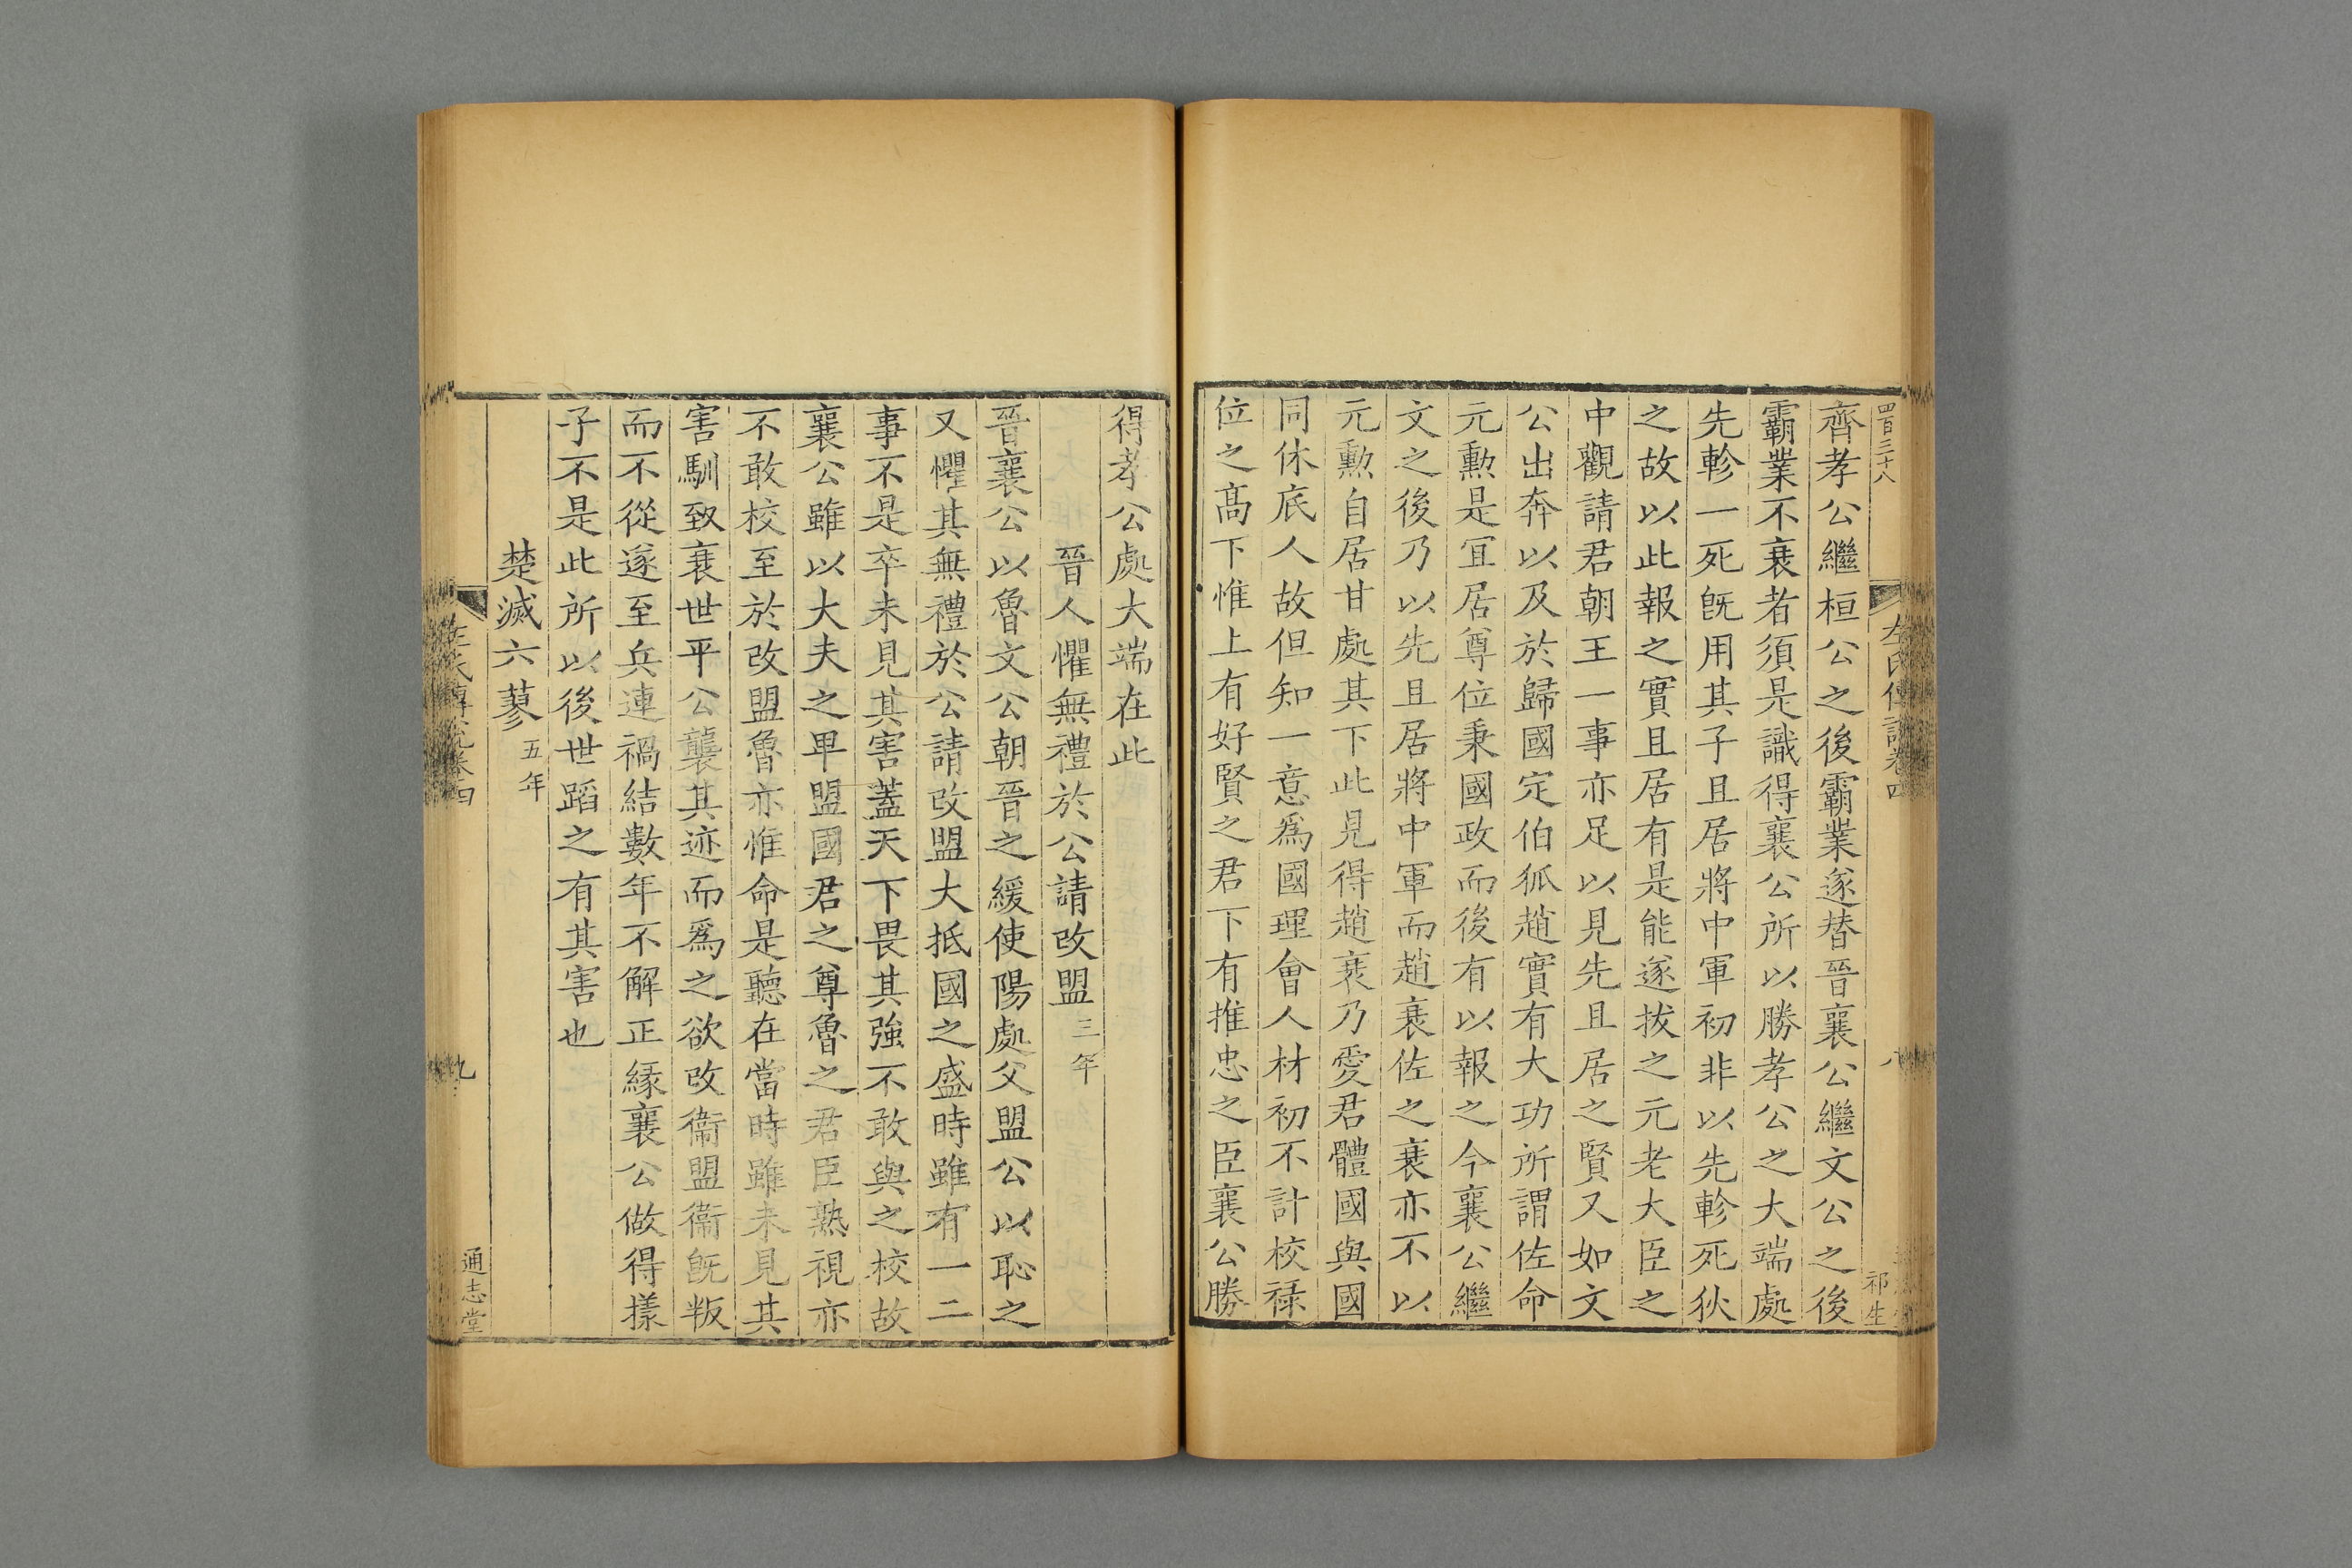 四百三十八
齊孝公繼桓公之後霸業遂替晉襄公繼文公之後
霸業不衰者須是識得襄公所以勝孝公之大端處
先軫一死旣用其子且居將中軍初非以先軫死狄
之故以此報之實且居有是能遂拔之元老大臣之
中觀請君朝王一事亦足以見先且居之賢又如文
公出奔以及於歸國定伯狐趙實有大功所謂佐命
元勲是冝居尊位秉國政而後有以報之今襄公繼
文之後乃以先且居將中軍而趙衰佐之衰亦不以
元勲自居甘處其下此見得趙衰乃愛君體國與國
同休底人故但知一意爲國理會人材初不計校祿
位之髙下惟上有好賢之君下有推忠之臣襄公勝
左氏傳說卷四
八
祁生
得孝公處大端在此
晉人懼無禮於公請改盟三年
晉襄公以魯文公朝晉之緩使陽處父盟公以恥之
又懼其無禮於公請改盟大抵國之盛時雖有一二
事不是卒未見其害蓋天下畏其強不敢與之校故
襄公雖以大夫之卑盟國君之尊魯之君臣熟視亦
不敢校至於改盟魯亦惟命是聽在當時雖未見其
害馴致衰世平公襲其迹而爲之欲改衞盟衞旣叛
而不從遂至兵連禍結數年不解正緣襄公做得樣
子不是此所以後世蹈之有其害也
楚滅六蓼五年
左氏傳說卷四
九
通志堂